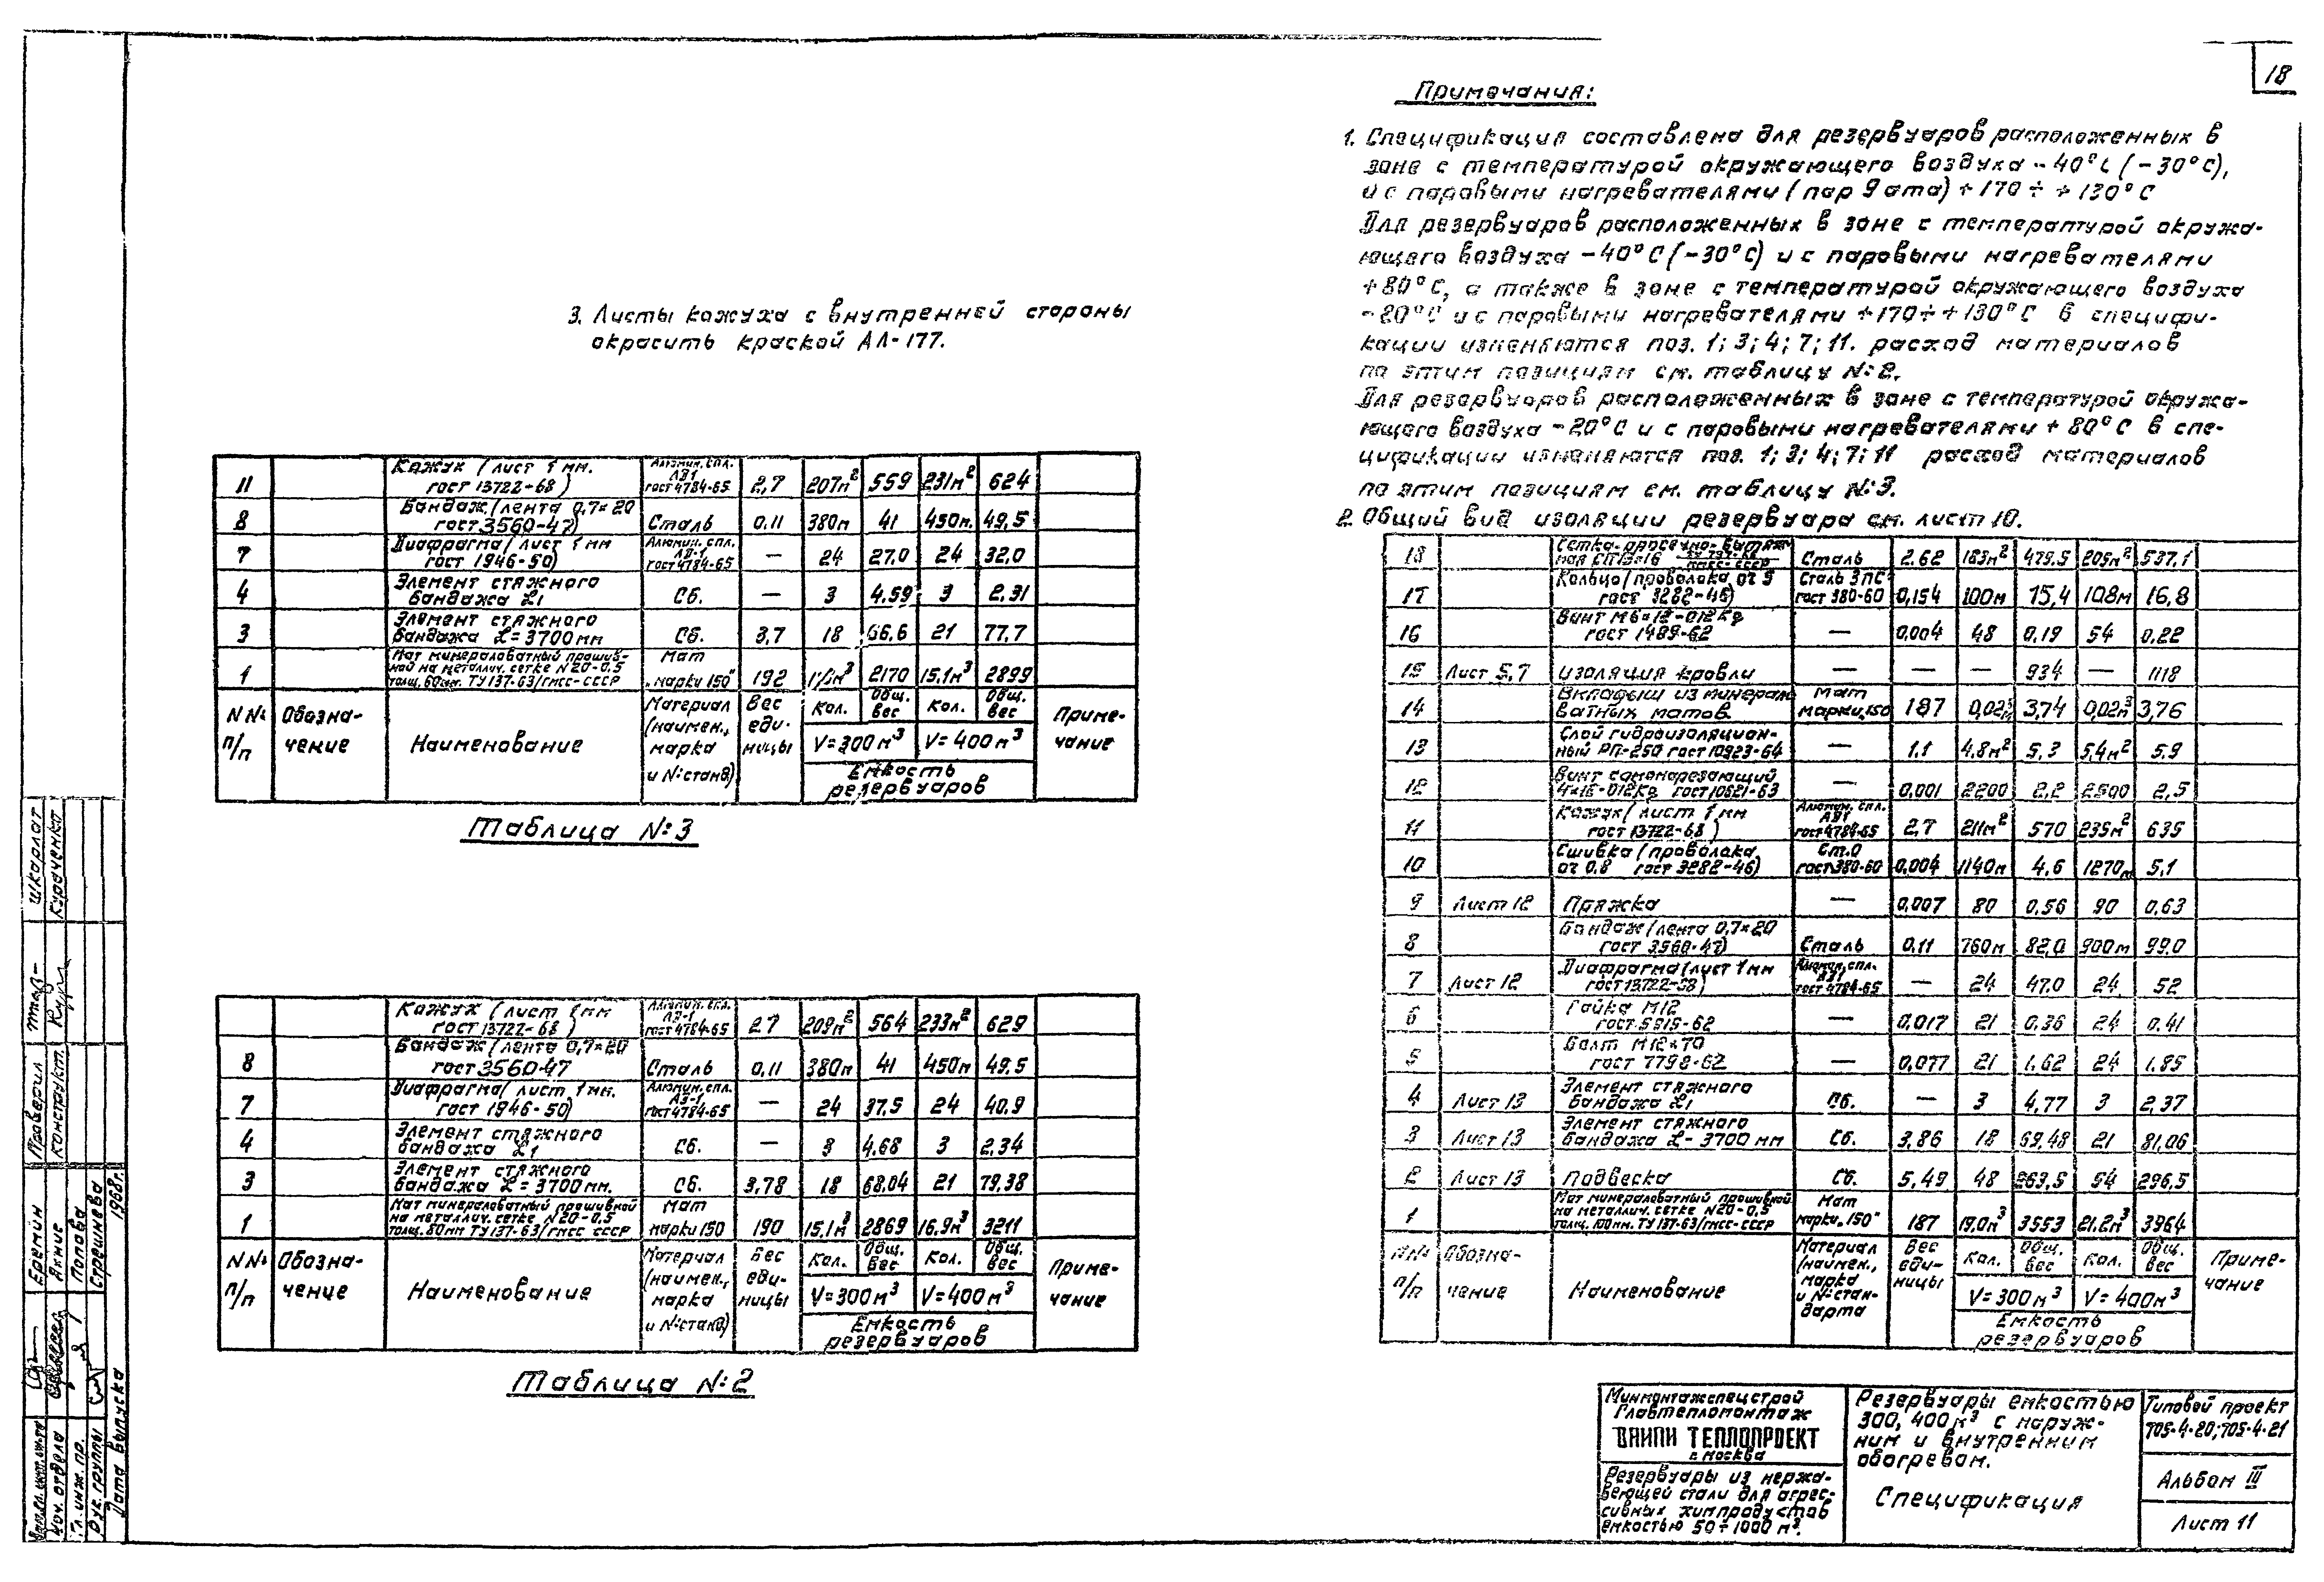 18
Примечания:
1. Спецификация составлена для резервуаров расположенных в
зоне с температурой окружающего воздуха -40°С (-30°С),
и с паровыми нагревателями (пар 9 ата) +170 ÷ +130°С
Для резервуаров расположенных в зоне с температурой окружа-
ющего воздуха -40°С (-30°С) и с паровыми нагревателями
+80°С, а также в зоне с температурой окружающего воздуха
-20°С и с паровыми нагревателями +170÷+130°С в специфи-
кации изменяются поз. 1; 3; 4; 7; 11. расход материалов
по этим позициям см. таблицу №2.
Для резервуаров расположенных в зоне с температурой окружа-
ющего воздуха -20°С и с паровыми нагревателями +80°С в спе-
цификации изменяются поз. 1; 3; 4; 7; 11 расход материалов
по этим позициям см. таблицу №3.
2. Общий вид изоляции резервуара см. лист 10.
3. Листы кожуха с внутренней стороны
окрасить краской АЛ-177.
11 Кожух (лист 1 мм. гост 13722-68) Алюмин. спл. АД1 гост 4784-65 2,7 207м² 559 231м² 624
8 Бандаж (лента 0,7×20 гост 3560-47) Сталь 0,11 380м 41 450м. 49,5
7 Диафрагма (лист 1 мм гост 1946-50) Алюмин. спл. АД-1, гост 4784-65 — 24 27.0 24 32,0
4 Элемент стяжного бандажа ℓ1 Сб. — 3 4,59 3 2,31
3 Элемент стяжного бандажа ℓ=3700мм Сб. 3,7 18 66,6 21 77,7
1 Мат минераловатный прошив- ной на металлич. сетке N20-0,5 толщ. 60мм. ТУ 137-63/гмсс-СССР Мат „марки 150" 192 2170 15,1м³ 2899
N N: п/п Обозна- чение Наименование Материал (наимен., марка и N: станд) Вес еди- ницы Кол. Общ. вес Кол. Общ. вес Приме- чание
V=300м³ V=400м³
Емкость резервуаров
Таблица №3
Кожух (лист 1мм гост 13722-68) Алюмин. спл. АД-1 гост 4784-65 2.7 209м² 564 233м² 629
8 Бандаж (лента 0,7×20 гост 3560-47 Сталь 0,11 380м 41 450м 49,5
7 Диафрагма (лист 1 мм. гост 1946-50) Алюмин. спл. АД-1, гост 4784-65 — 24 37,5 24 40,9
4 Элемент стяжного бандажа ℓ1 Сб. — 3 4,68 3 2,34
3 Элемент стяжного бандажа ℓ=3700мм. Сб. 3,78 18 68,04 21 79,38
1 Мат минераловатный прошивной на металлич. сетке N20-0,5 толщ. 80мм ТУ 137-63/гмсс СССР Мат марки 150 190 15,1м³ 2869 16,9м³ 3211
N N: п/п Обозна- чение Наименование Материал (наимен., марка и N: станд) Вес еди- ницы Кол. Общ. вес Кол. Общ. вес Приме- чание
V=300м³ V=400м³
Емкость резервуаров
Таблица №2
18 Сетка-просечно-вытяж- ная Сталь 2.62 183м² 479.5 205м² 537.1
17 Кольцо (проволока от 5 гост 3282-46) Сталь 3 ПС гост 380-60 0,154 100м 15,4 108м 16,8
16 Винт М6×12-012кд гост 1489-62 — 0,004 48 0,19 54 0.22
15 Лист 5,7 Изоляция кровли — — — 934 — 1118
14 Вкладыш из минерало ватных матов Мат марки,150 187 0,02м³ 3,74 0,02м³ 3,76
13 Слой гидроизоляцион- ный РП-250 гост 10923-64 — 1.1 4.8м² 5.3 5,4м² 5.9
12 Винт самонарезающий 4×15-012кд гост 10621-63 — 0,001 2200 2,2 2500 2,5
11 Кожух (лист 1 мм гост 13722-68) Алюмин. спл. АД1 гост 4784-65 2,7 211м² 570 235м² 635
10 Сшивка (проволока от 0.8 гост 3282-46) Ст.0 гост 380-60 0,004 1140м 4.6 1270м 5,1
9 Лист 12 Пряжка — 0,007 80 0,56 90 0,63
8 Бандаж (лента 0,7×20 гост 3560-47) Сталь 0,11 760м 82,0 900м 99.0
7 Лист 12 Диафрагма (лист 1 мм гост 13722-68) Алюмин. спл. АД1 гост 4784-65 — 24 47.0 24 52
6 Гайка М12 гост 5915-62 — 0,017 21 0,36 24 0.41
5 Болт М12×70 гост 7798-62 — 0,077 21 1,62 24 1.85
4 Лист 13 Элемент стяжного бандажа ℓ1 Сб. — 3 4,77 3 2,37
3 Лист 13 Элемент стяжного бандажа ℓ- 3700 мм Сб. 3,86 18 69,48 21 81,06
2 Лист 13 Подвеска Сб. 5,49 48 263,5 54 296,5
1 Мат минераловатный прошивной на металлич. сетке N20-0,5 толщ. 100мм. ТУ 137-63/гмсс-СССР Мат марки „150" 187 19.0м³ 3553 21.2м³ 3964
N N: п/п Обозна- чение Наименование Материал (наимен., марка и N: стан- дарта Вес еди- ницы Кол. Общ. вес Кол. Общ. вес Приме- чание
V=300м³ V=400м³
Емкость резервуаров
Минмонтажспецстрой
Главтепломонтаж
ВНИПИ ТЕПЛОПРОЕКТ
г. москва
Резервуары из нержа-
веющей стали для агрес-
сивных химпродуктов
емкостью 50÷1000 м³.
Резервуары емкостью
300, 400м³ с наруж-
ним и внутренним
обогревом.
Спецификация
Типовой проект
705-4-20; 705-4-21
Альбом III
Лист 11
Нач. отдела Акние
Гл. инж. пр. Попова
Рук. группы Стрешнева
Дата выпуска 1968г.
Еремин
Проверил Шкарлат
Конструкт. Кураченко